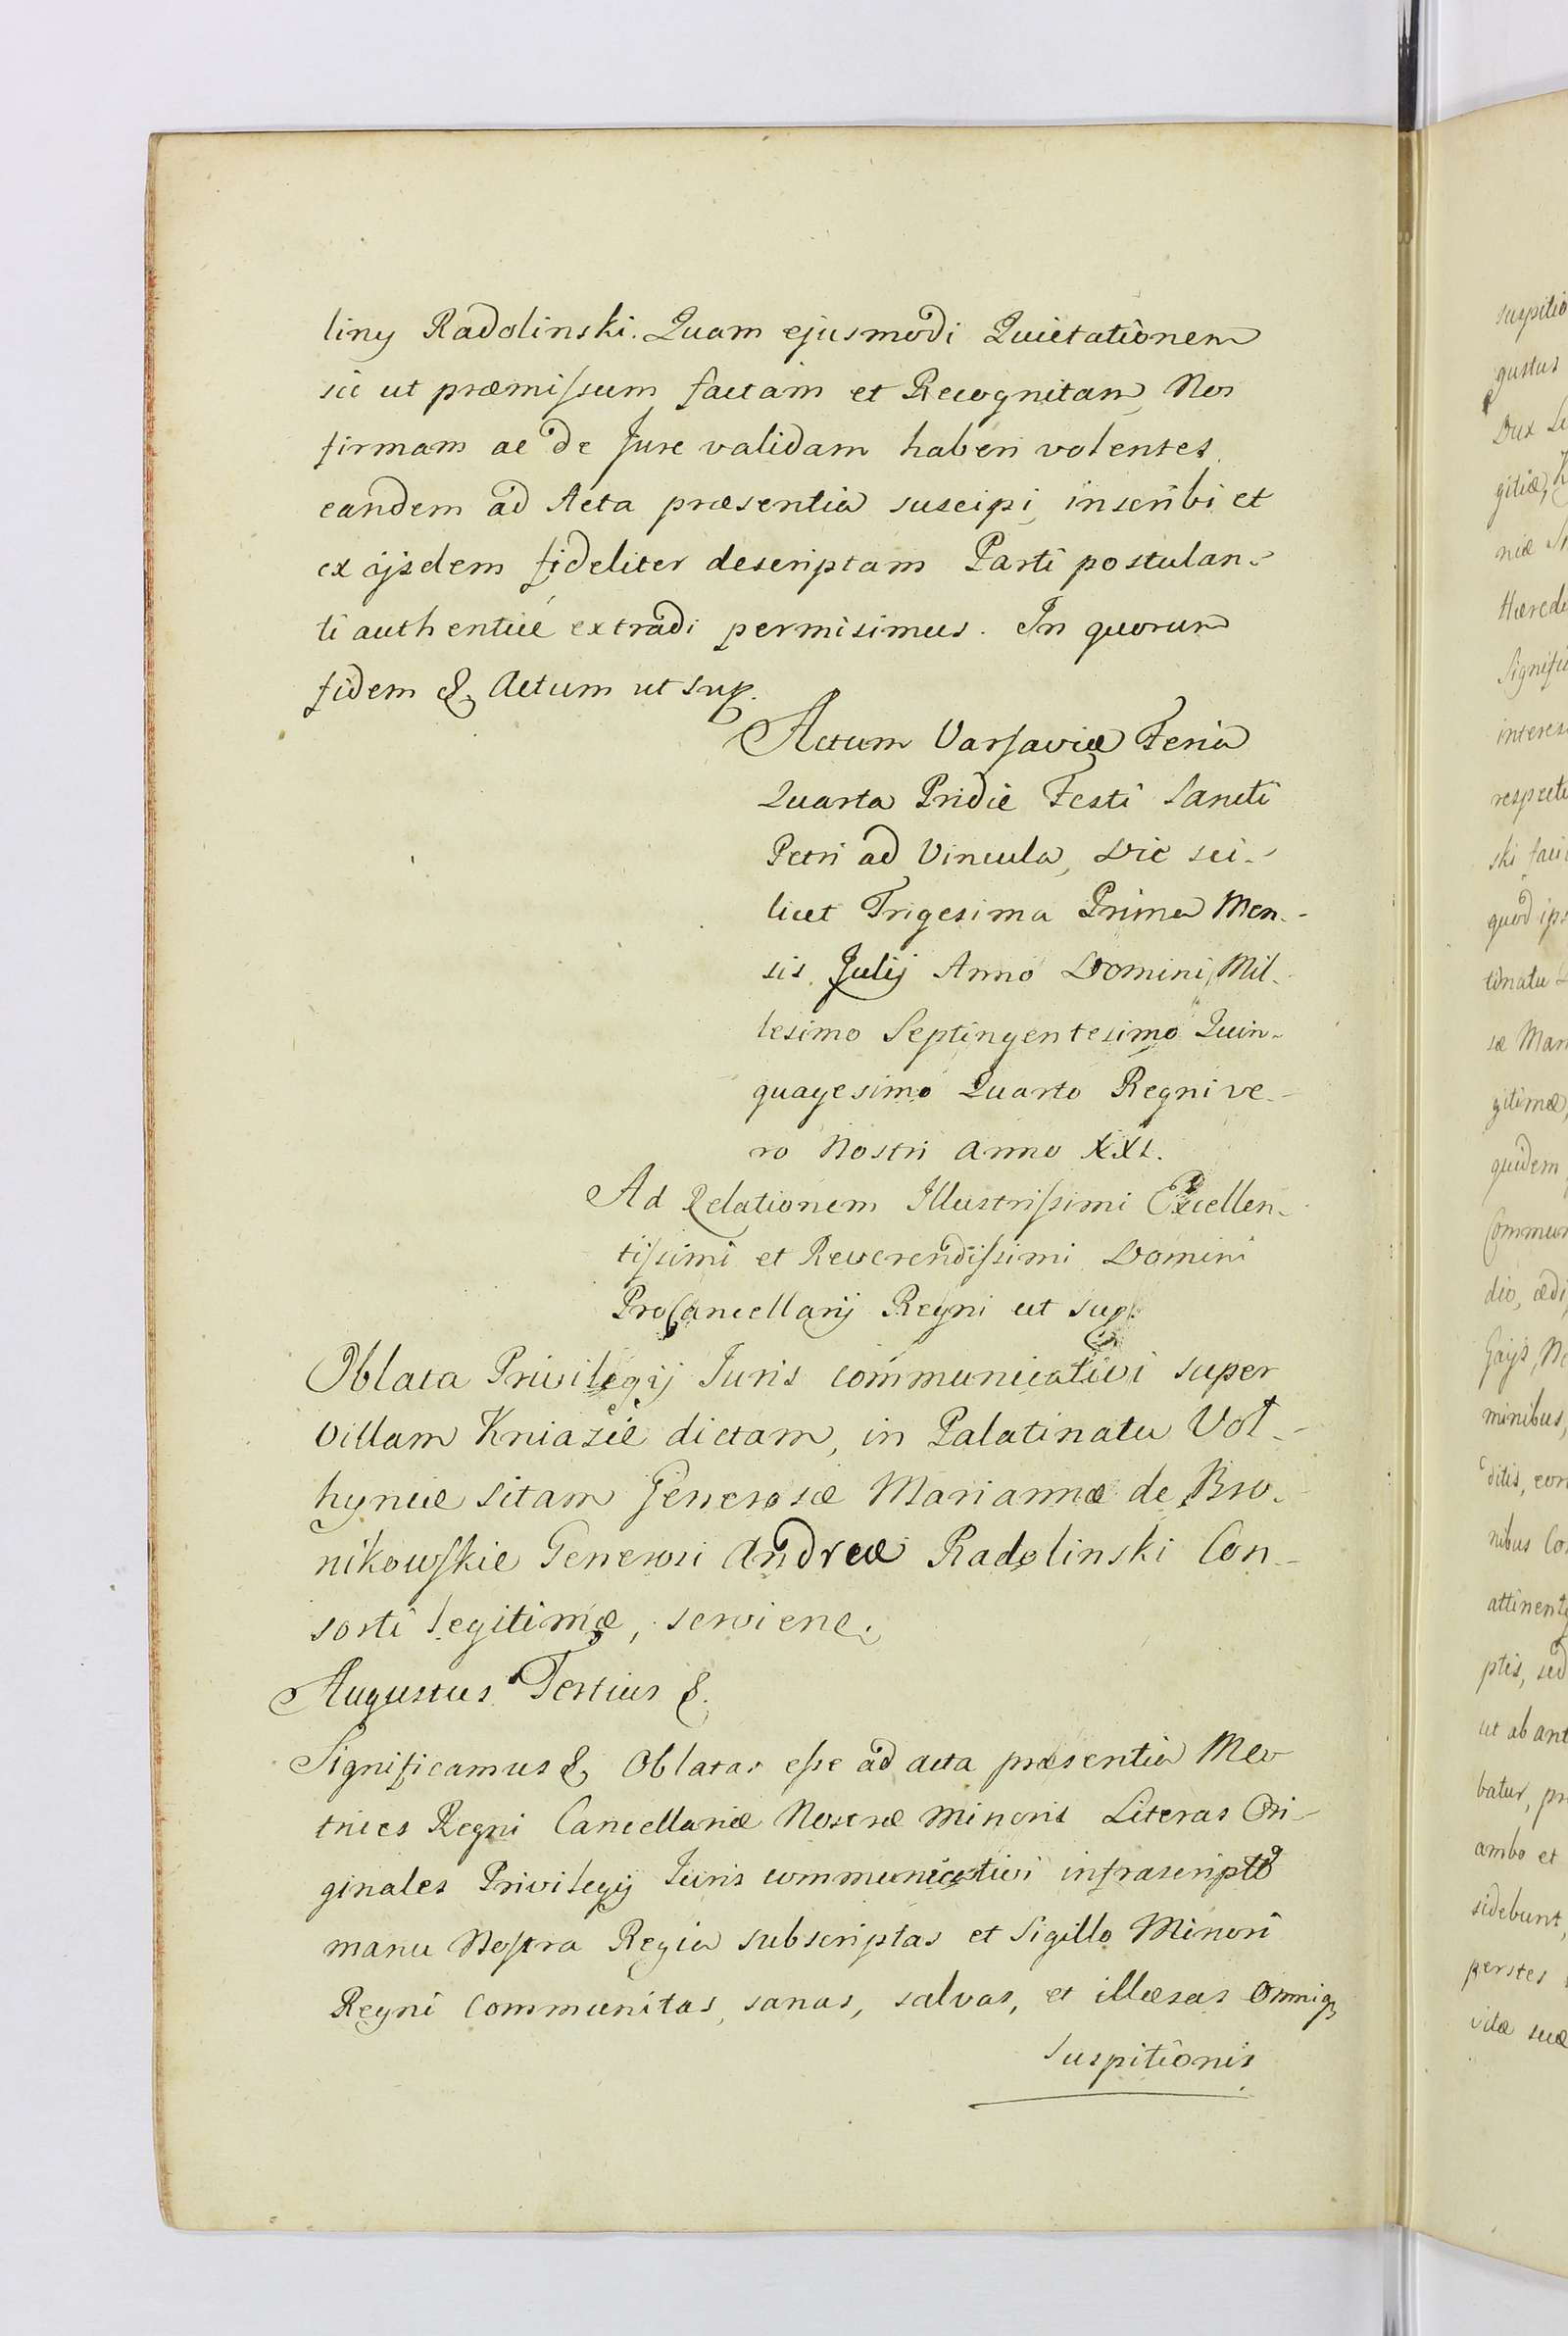 liny Radolinski. Quam ejusmodi Quietationem
sic ut præmissum factam et Recognitam, Nos
firmam ac de Jure validam haberi volentes
eandem ad Acta præsentia suscipi, inscribi et
ex ijsdem fideliter descriptam Parti postulan-
ti authentice extradi permisimus. In quorum
fidem & Actum ut sup.
Actum Varsaviæ Feria
Quarta Pridie Festi Sancti
Petri ad Vincula, Die sci-
licet Trigesima Prima Men-
sis Julij Anno Domini Mil-
lesimo Septingentesimo Quin-
quagesimo Quarto Regni ve-
ro Nostri Anno XXI.
Ad Relationem Illustrissimi Excellen-
tissimi et Reverendissimi Domini
ProCancellarij Regni ut sup.
Oblata Privilegij Juris communicativi super
Villam Kniazie dictam, in Palatinatu Vol-
hyniæ sitam Generosæ Mariannæ de Bro-
nikowskie Generosi Andreæ Radolinski Con-
sorti legitimæ, servien.
Augustus Tertius &.
Significamus & Oblatas esse ad acta præsentia Me-
trices Regni Cancellariæ Nostræ Minoris Literas Ori-
ginales Privilegij Juris communicativi infrascripti
manu Nostra Regia subscriptas et Sigillo Minori
Regni Communitas, sanas, salvas, et illæsas Omniq
suspitionis
suspitio
gustus
Dux
gitiæ,
niæ
Hærede
Signific
interes
respecti
ski
quod ips
tinatu
sæ Mar
gitimæ,
quidem
Commun
dio, ædi
minibus,
ditis, con
nibus Co
attinent
ptis, sed
ut ab ant
batur, pr
ambo et
sidebunt,
perstes
vitæ suæ